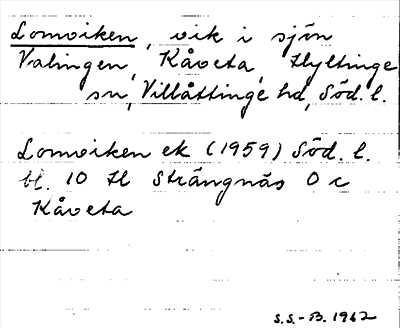 Lomviken, vik i sjön
Valingen, Kåveta, Hyltinge
sn, Villåttinge hd, Söd. l.
Lomviken ek (1959) Söd. l.
bl. 10 H Strängnäs O c
Kåveta
S.S.-B. 1962